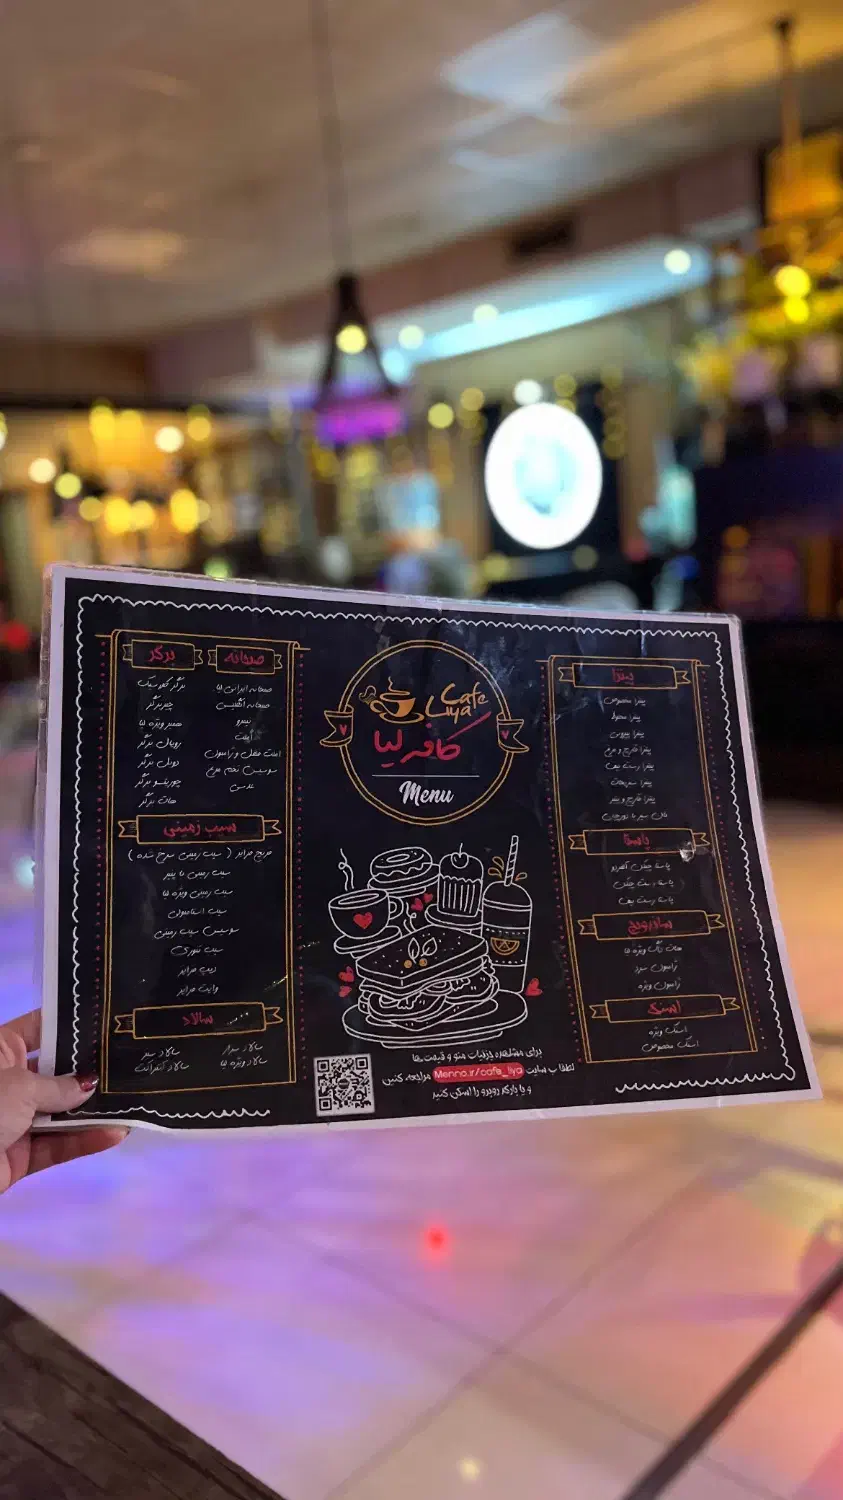 Cafe
Liya
کافه لیا
Menu
صبحانه
صبحانه ایرانی لیا
صبحانه انگلیسی
نیمرو
املت
سوسیس تخم مرغ
عدسی
برگر
برگر کلاسیک
چیزبرگر
همبر ویژه لیا
رویال برگر
دوبل برگر
هات برگر
سیب زمینی
فرنچ فرایز ( سیب زمینی سرخ شده )
سیب زمینی با پنیر
سیب زمینی ویژه لیا
سیب استامبولی
سوسیس سیب زمینی
سیب تنوری
دیپ فرایز
وایت فرایز
سالاد
سالاد سزار
سالاد ویژه لیا
سالاد سبز
پیتزا
پیتزا مخصوص
پیتزا مخلوط
پیتزا پپرونی
پیتزا قارچ و مرغ
پیتزا رست بیف
پیتزا سبزیجات
پاستا
پاستا چیکن آلفردو
پاستا رست چیکن
پاستا رست بیف
ساندویچ
هات داگ ویژه لیا
ژامبون سرد
ژامبون ویژه
اسنک
اسنک ویژه
اسنک مخصوص
برای مشاهده جزئیات منو و قیمت ها
لطفا ب سایت Menno.ir/cafe_liya مراجعه کنین
و یا بارکد روبرو را اسکن کنید